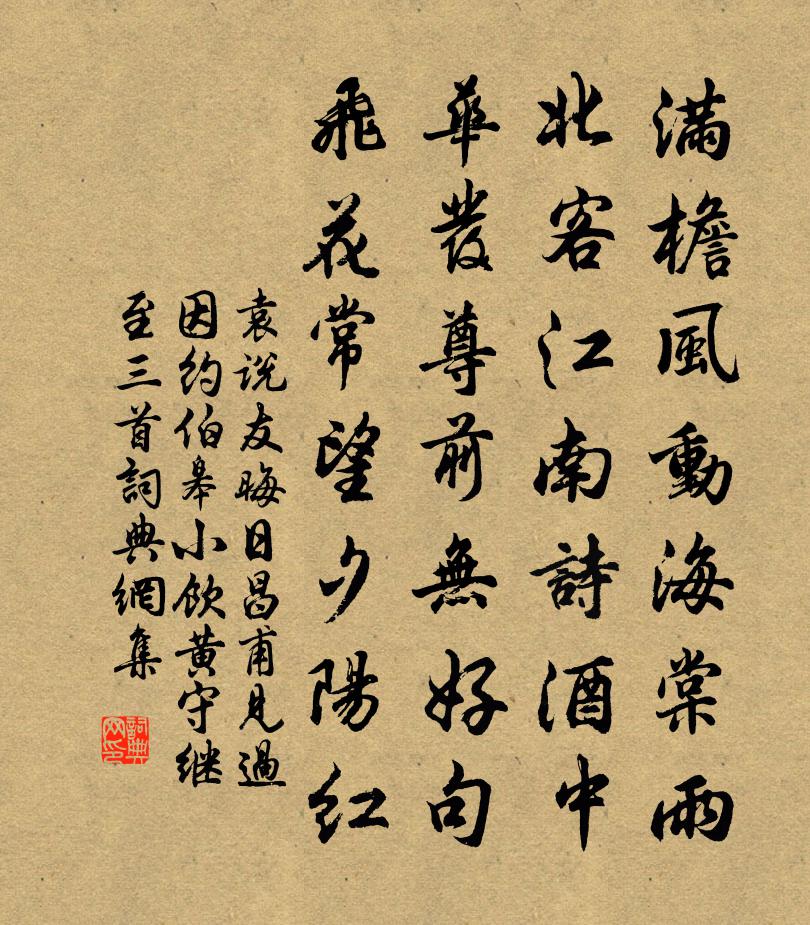 滿檐風動海棠雨
北客江南詩酒中
華發尊前無好句
飛花常望夕陽紅
袁說友晦日昌甫見過
因約伯皋小飲黄守継
至三首詞典網集
詞典
网印